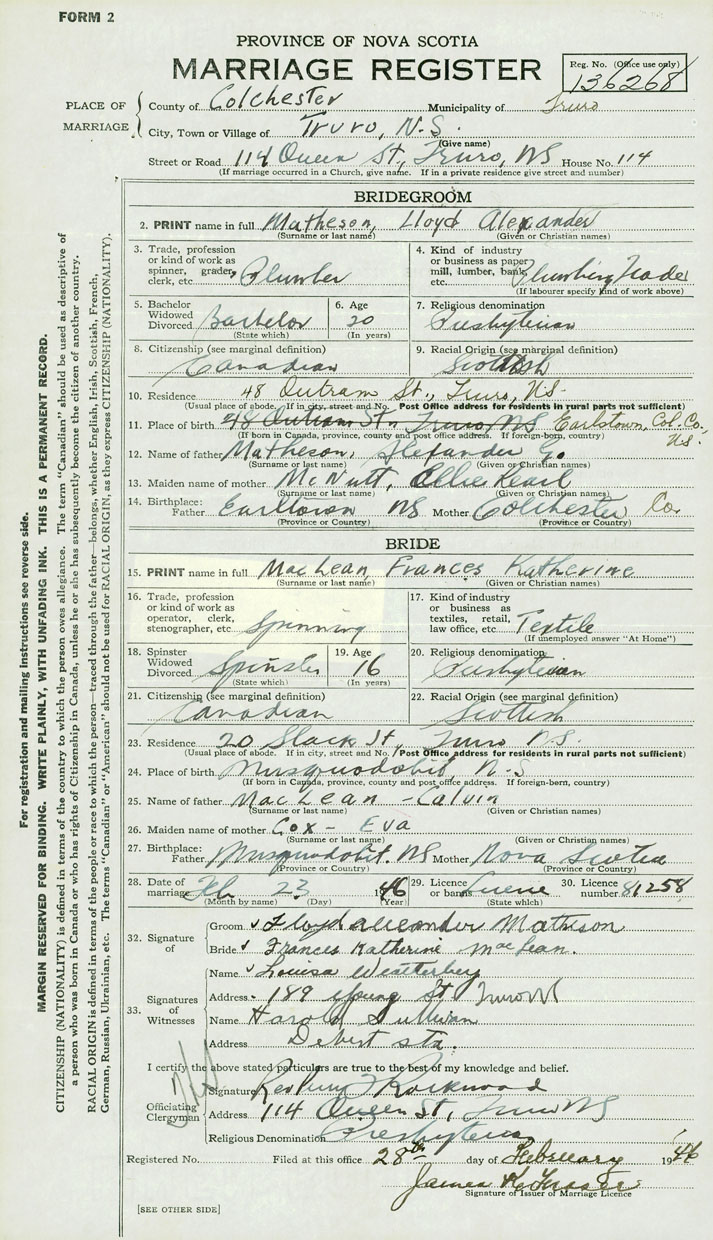 FORM 2
PROVINCE OF NOVA SCOTIA
MARRIAGE REGISTER
Reg. No. (Office use only)
136268
PLACE OF MARRIAGE
County of Colchester Municipality of Truro
City, Town or Village of Truro, N.S.
(Give name)
Street or Road 114 Queen St., Truro, NS House No. 114
(If marriage occurred in a Church, give name. If in a private residence give street and number)
BRIDEGROOM
2. PRINT name in full Matheson, Lloyd Alexander
(Surname or last name) (Given or Christian names)
3. Trade, profession or kind of work as spinner, grader, clerk, etc Plumber
4. Kind of industry or business as paper mill, lumber, bank, etc. Plumbing Trade
(If labourer specify kind of work above)
5. Bachelor Widowed Divorced Bachelor
(State which)
6. Age 20
(In years)
7. Religious denomination
Presbyterian
8. Citizenship (see marginal definition)
Canadian
9. Racial Origin (see marginal definition)
Scottish
10. Residence 48 Outram St., Truro, NS
(Usual place of abode. If in city, street and No. Post Office address for residents in rural parts not sufficient)
11. Place of birth 48 Outram St. Truro, NS Earltown, Col. Co., N.S.
(If born in Canada, province, county and post office address. If foreign-born, country)
12. Name of father Matheson, Alexander G.
(Surname or last name) (Given or Christian names)
13. Maiden name of mother McNutt, Ollie Pearl
(Surname or last name) (Given or Christian names)
14. Birthplace: Father Earltown NS Mother Colchester Co.
(Province or Country) (Province or Country)
BRIDE
15. PRINT name in full MacLean, Frances Katherine
(Surname or last name) (Given or Christian names)
16. Trade, profession or kind of work as operator, clerk, stenographer, etc Spinning
17. Kind of industry or business as textiles, retail, law office, etc Textile
(If unemployed answer "At Home")
18. Spinster Widowed Divorced Spinster
(State which)
19. Age 16
(In years)
20. Religious denomination
Presbyterian
21. Citizenship (see marginal definition)
Canadian
22. Racial Origin (see marginal definition)
Scottish
23. Residence 20 Slack St., Truro N.S.
(Usual place of abode. If in city, street and No. Post Office address for residents in rural parts not sufficient)
24. Place of birth Musquodobit, N-S
(If born in Canada, province, county and post office address. If foreign-born, country)
25. Name of father MacLean - Calvin
(Surname or last name) (Given or Christian names)
26. Maiden name of mother Cox - Eva
(Surname or last name) (Given or Christian names)
27. Birthplace: Father Musquodobit. NS Mother Nova Scotia
(Province or Country) (Province or Country)
28. Date of marriage Feb 23 1946
(Month by name) (Day) (Year)
29. Licence or banns
(State which)
30. Licence number 81258
32. Signature of
Groom Lloyd Alexander Matheson
Bride Frances Katherine MacLean.
33. Signatures of Witnesses
Name Louisa Weatherbey
Address 189 Young St Truro NS
Name Harold Sullivan
Address Debert Sta.
I certify the above stated particulars are true to the best of my knowledge and belief.
Officiating Clergyman
Signature Rockwood
Address 114 Queen St., Truro NS
Religious Denomination Presbyterian
Registered No. Filed at this office 28th day of February 1946
James K. Fraser
Signature of Issuer of Marriage Licence
[SEE OTHER SIDE]
For registration and mailing instructions see reverse side.
MARGIN RESERVED FOR BINDING. WRITE PLAINLY, WITH UNFADING INK. THIS IS A PERMANENT RECORD.
CITIZENSHIP (NATIONALITY) is defined in terms of the country to which the person owes allegiance. The term "Canadian" should be used as descriptive of
a person who was born in Canada or who has rights of Citizenship in Canada, unless he or she has subsequently become the citizen of another country.
RACIAL ORIGIN is defined in terms of the people or race to which the person—traced through the father—belongs, whether English, Irish, Scottish, French,
German, Russian, Ukrainian, etc. The terms "Canadian" or "American" should not be used for RACIAL ORIGIN, as they express CITIZENSHIP (NATIONALITY).